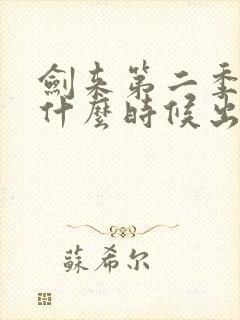 劍来第二季
什麼時候出
蘇希尔